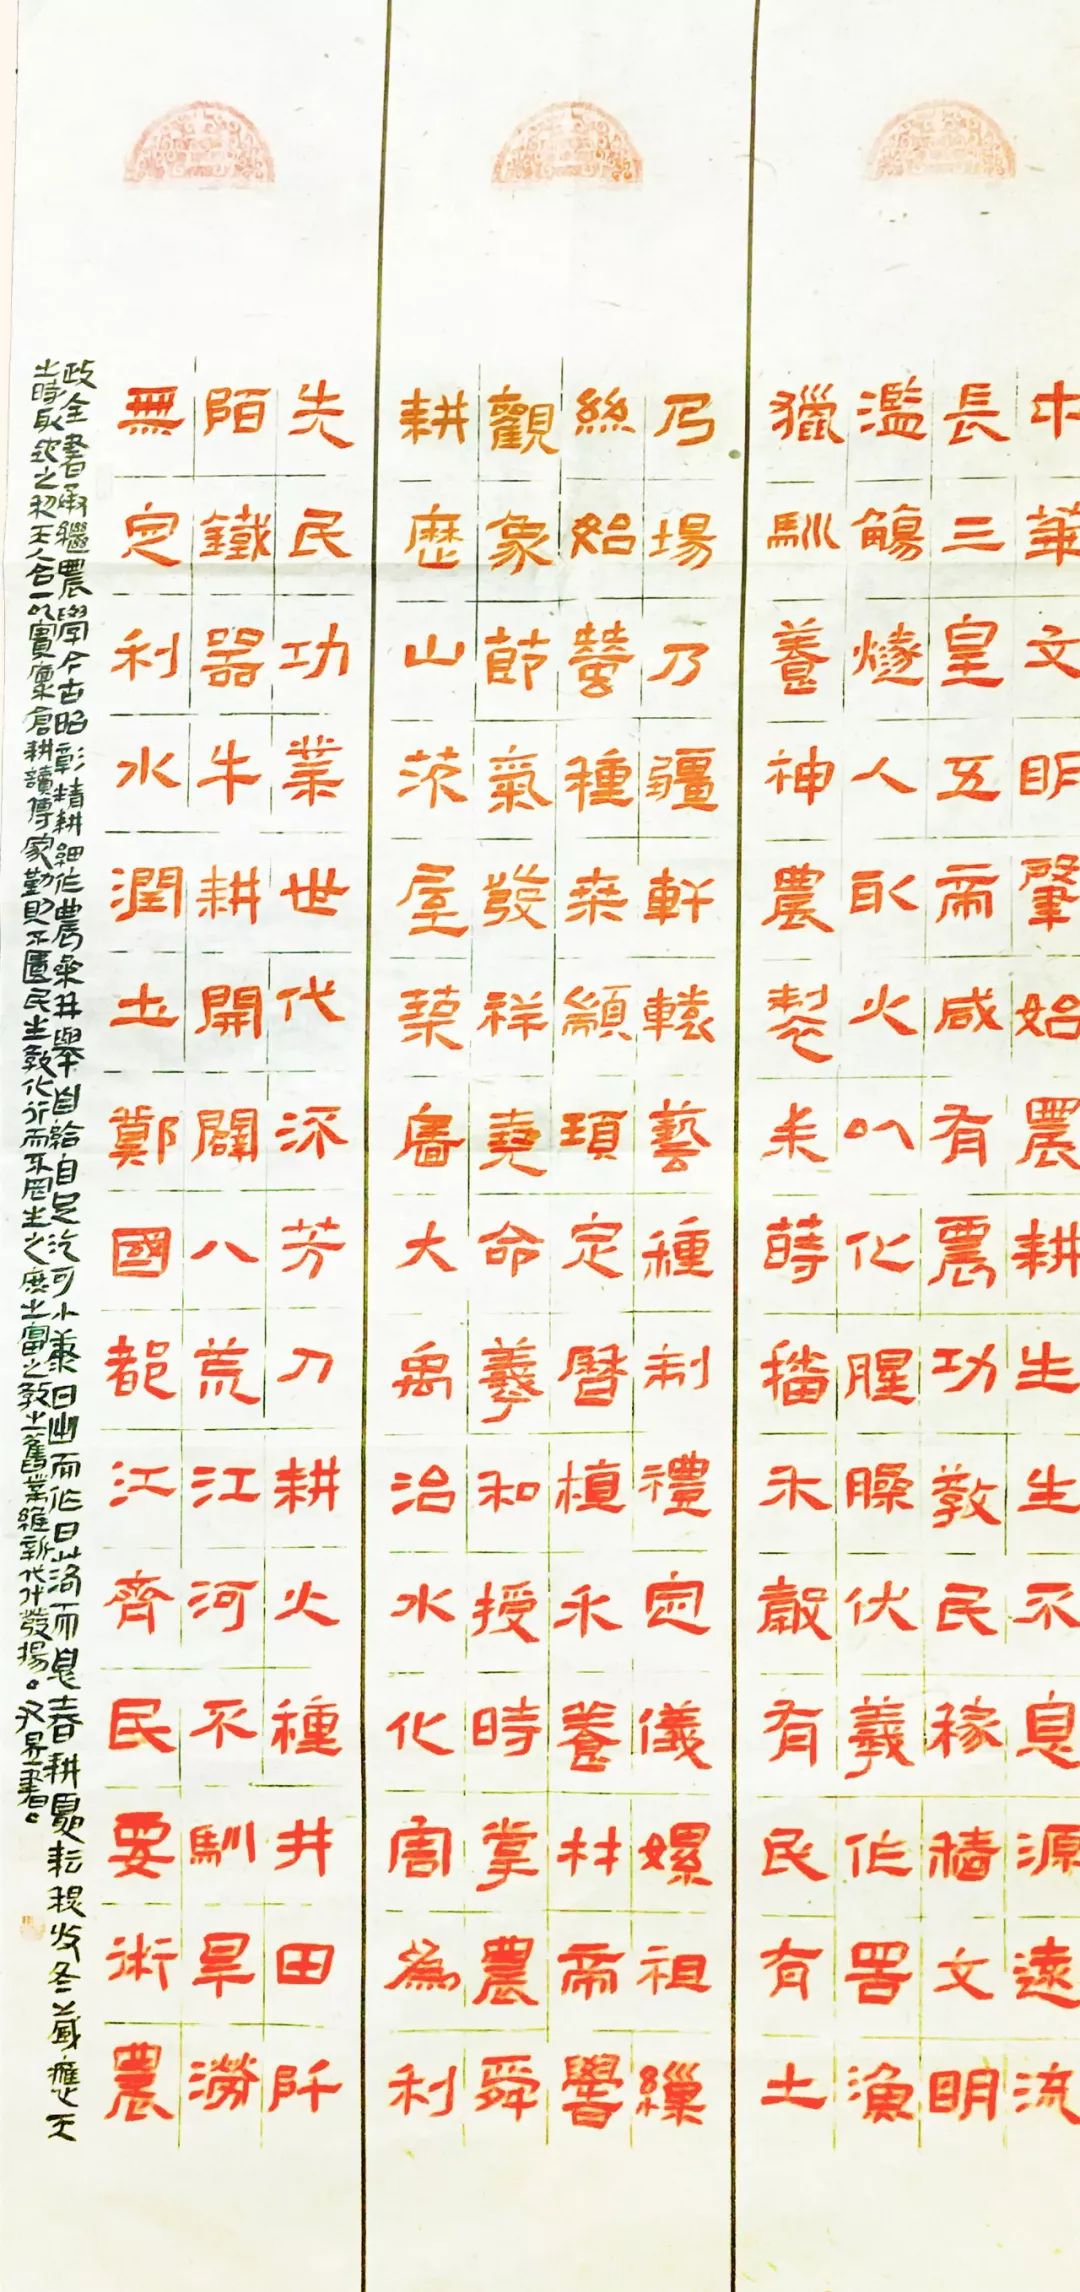 中華文明肇始農耕生生不息源遠流
長三皇五帝咸有農功敎民稼穡文明
濫觴燧人取火以化腥臊伏羲作罟漁
獵馴養神農製耒蒔播禾穀有民有土
乃場乃疆軒轅藝種制禮定儀嫘祖繅
絲始蠶種桒顓頊定曆植禾養材帝嚳
觀象節氣發祥堯命羲和授時掌農舜
耕歷山茨屋築啚大禹治水化害為利
先民功業世代流芳刀耕火種井田阡
陌鐵器牛耕開闢八荒江河不馴旱澇
無定利水潤土鄭國都江齊民要術農
政全書承繼農學今古昭彰精耕細作農桒并舉自給自足汔可小康日出而作日落而息春耕夏耘穫收冬藏應天
之時取地之利天人合一以實廩倉耕讀傳家勤則不匱民生敎化行而不罔生之庶之富之敎之舊業維新代代發揚。書。